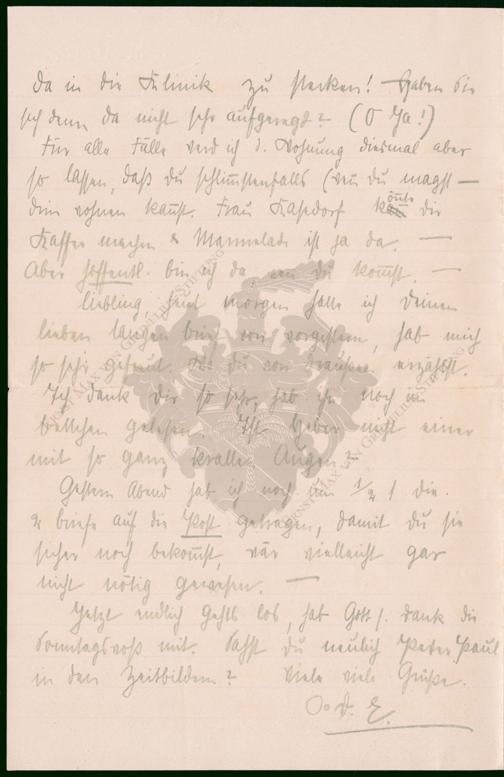 da in die Klinik zu stecken! Haben Sie
sich denn da nicht sehr aufgeregt? (O Ja!)
Für alle Fälle werd ich d. Wohnung diesmal aber
so lassen, daß du schlimmstenfalls (wen du magst —
drin wohnen kanst. Frau Kasdorf könte dir
Kaffee machen & Marmelade ist ja da. —
Aber hoffentl. bin ich da, wen du komst. —
Liebling, heut morgen hatte ich deinen
lieben langen brief von vorgestern, hab mich
so sehr gefreut. du von erzählst.
Ich dank dir so sehr, hab ihn noch im
bettchen gelesen. Ist Weber nicht einer
mit so ganz Augen?
Gestern Abend hab ich noch um 1/2 1 die
2 briefe auf die Post getragen, damit du sie
sicher noch bekomst, wär vielleicht gar
nicht nötig gewesen. —
Jetzt endlich gehts los, hab Gott s. dank die
mit. Sahst du neulich Peter Paul
in den Zeitbildern? Viele viele Grüße.
D. E.
ERNST MAX VON GRUNELIUS-STIFTUNG
ERNST MAX VON GRUNELIUS-STIFTUNG